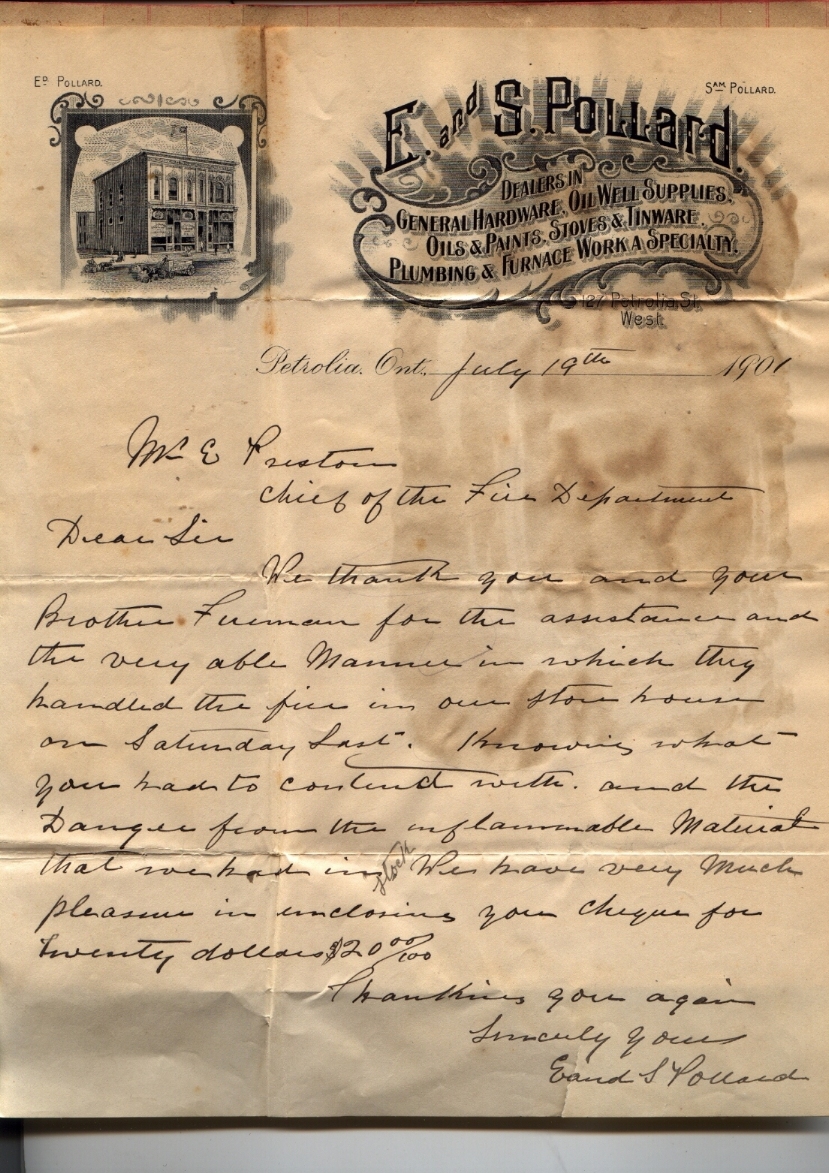 Ed. Pollard.
Sam Pollard.
E. and S. Pollard.
Dealers in
General Hardware, Oil Well Supplies,
Oils & Paints, Stoves & Tinware.
Plumbing & Furnace Work a Specialty.
127 Petrolia St.
West.
Petrolia, Ont. July 19th 1901
Mr E Preston
Chief of the Fire Department
Dear Sir
We thank you and your
Brother Fireman for the assistance and
the very able Manner in which they
handled the fire in our store house
on Saturday Last. Knowing what
you had to contend with. and the
Danger from the inflammable Material
that we had in stock We have very Much
pleasure in enclosing you cheque for
twenty dollars $20 00/100
Thanking you again
Sincerely yours
E and S Pollard